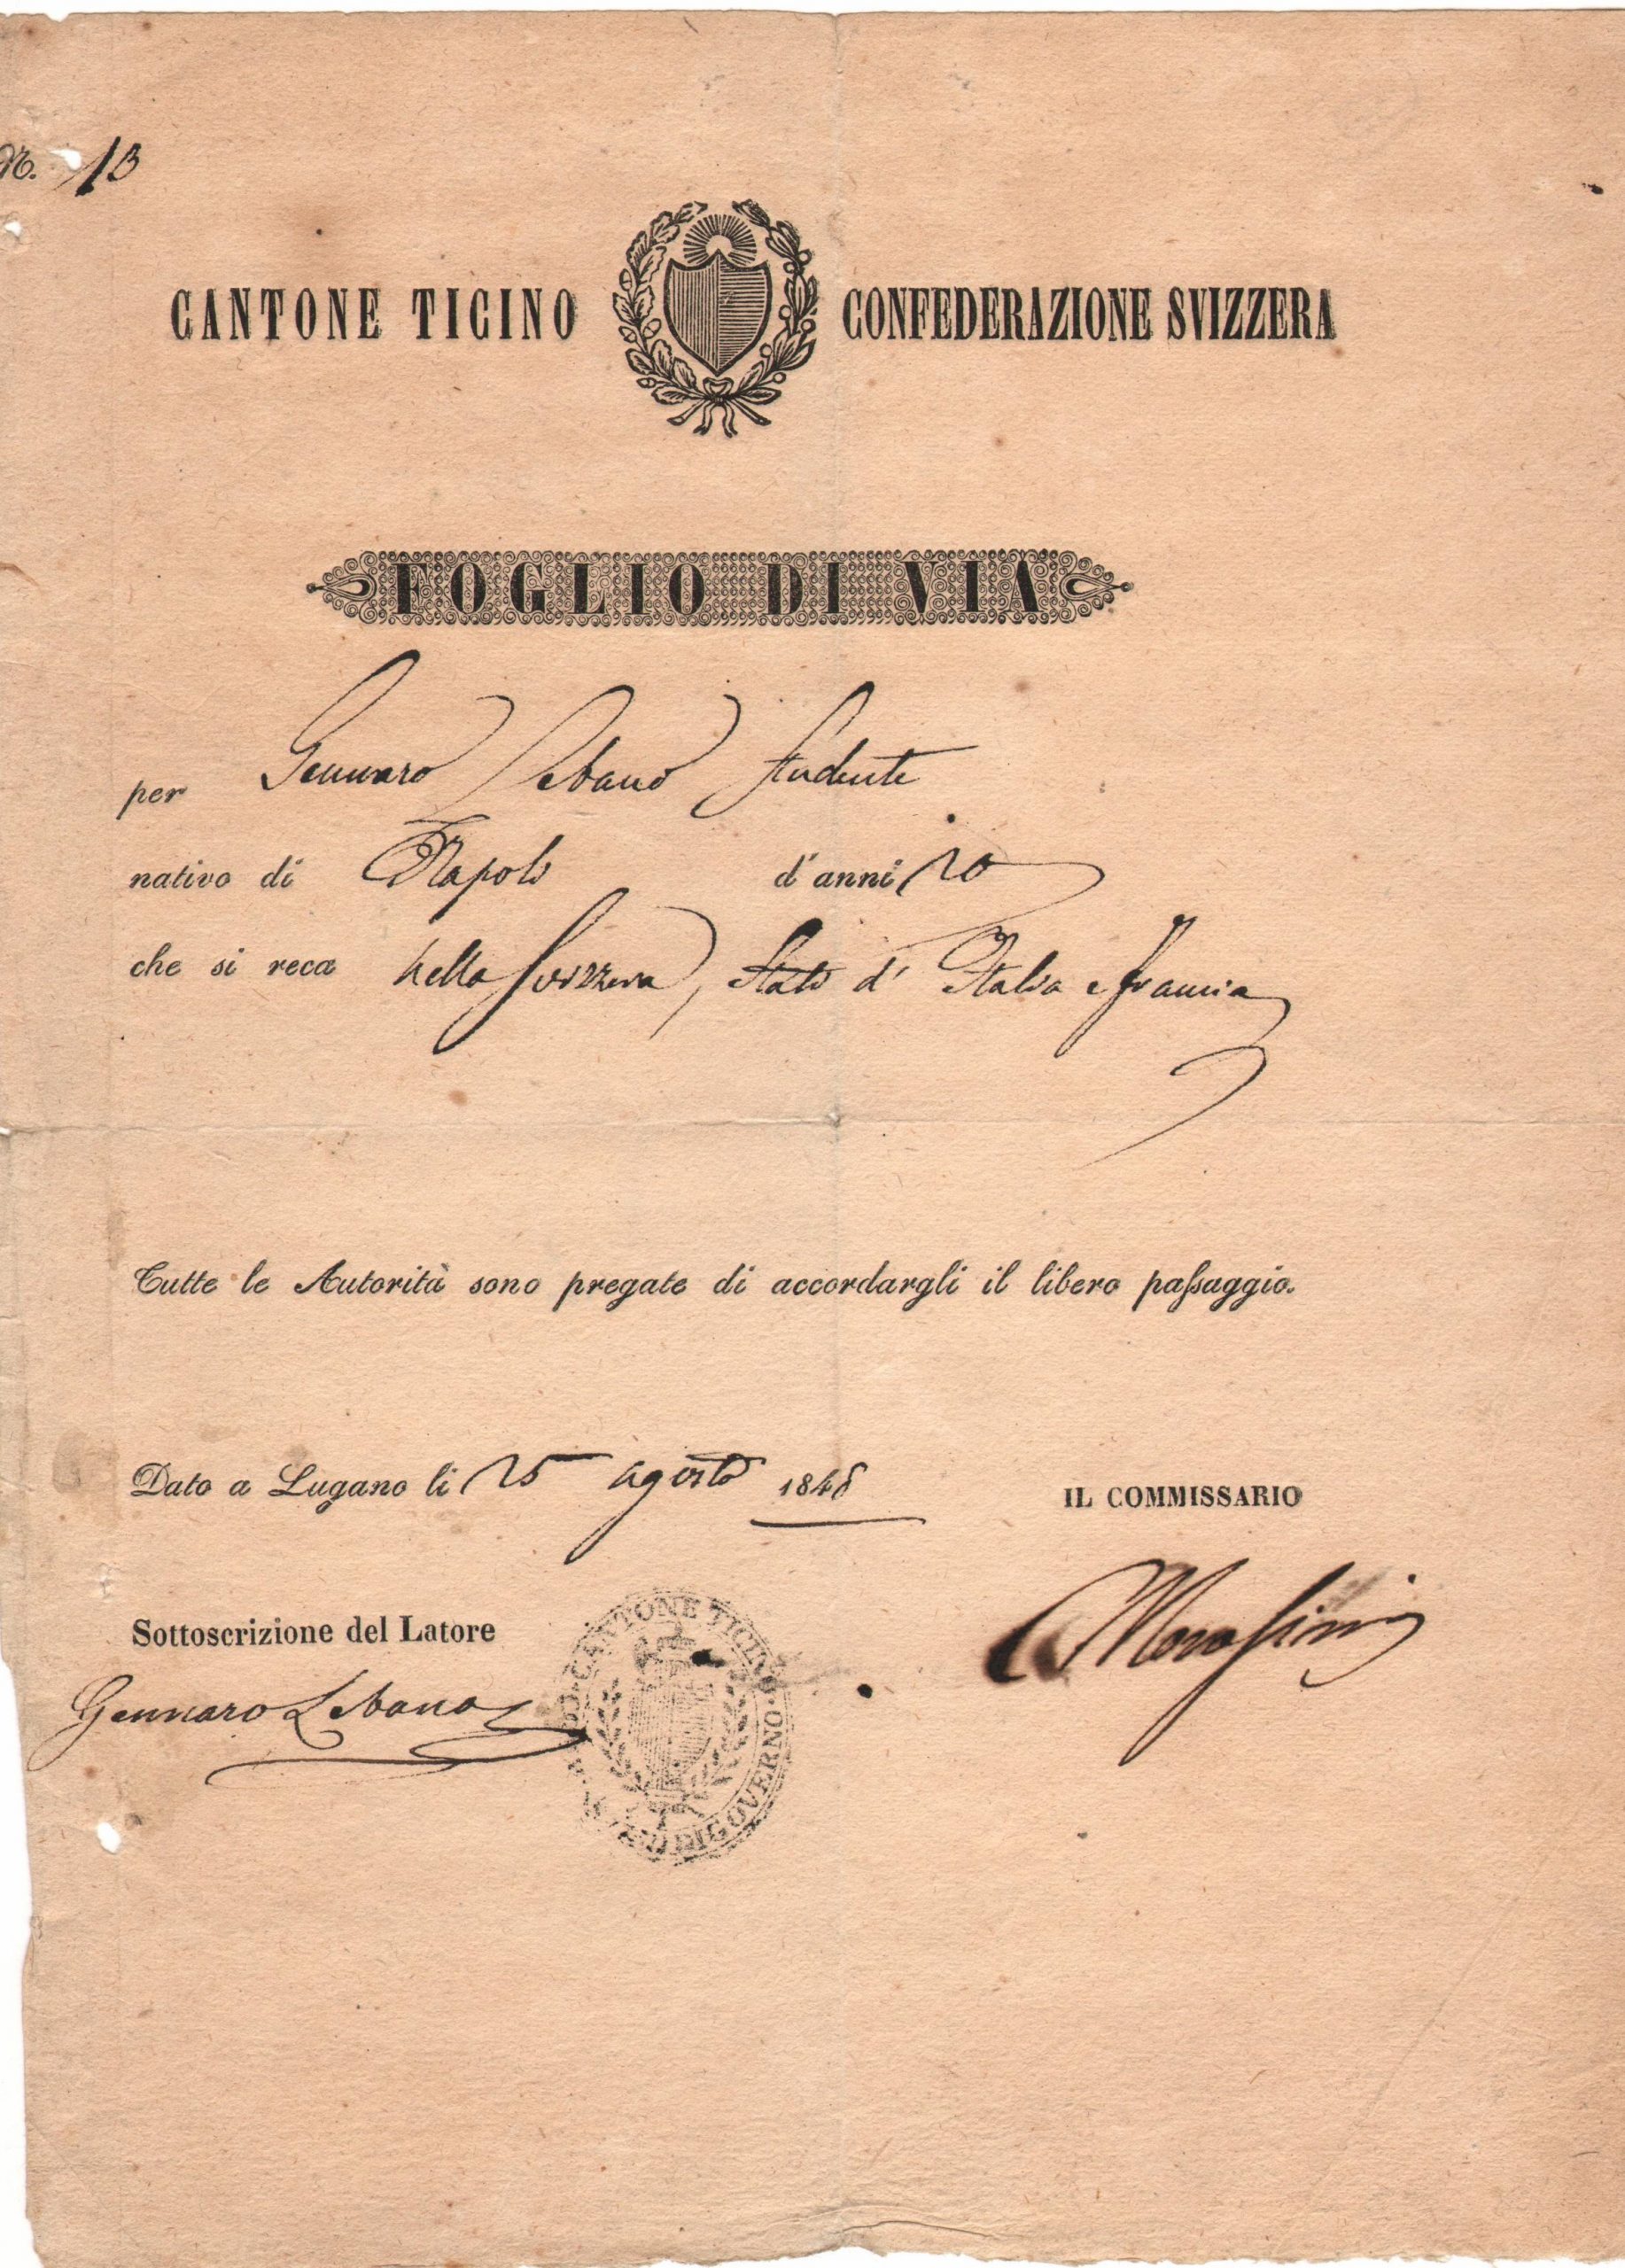 N. 13
CANTONE TICINO CONFEDERAZIONE SVIZZERA
FOGLIO DI VIA
per Gennaro Lebano Studente
nativo di Napoli d'anni 20
che si reca nella Svizzera, Stati d'Italia e Francia
Tutte le Autorità sono pregate di accordargli il libero passaggio.
Dato a Lugano li 25 agosto 1848
IL COMMISSARIO
Morosini
Sottoscrizione del Latore
Gennaro Lebano
CANTONE TICINO
DI GOVERNO